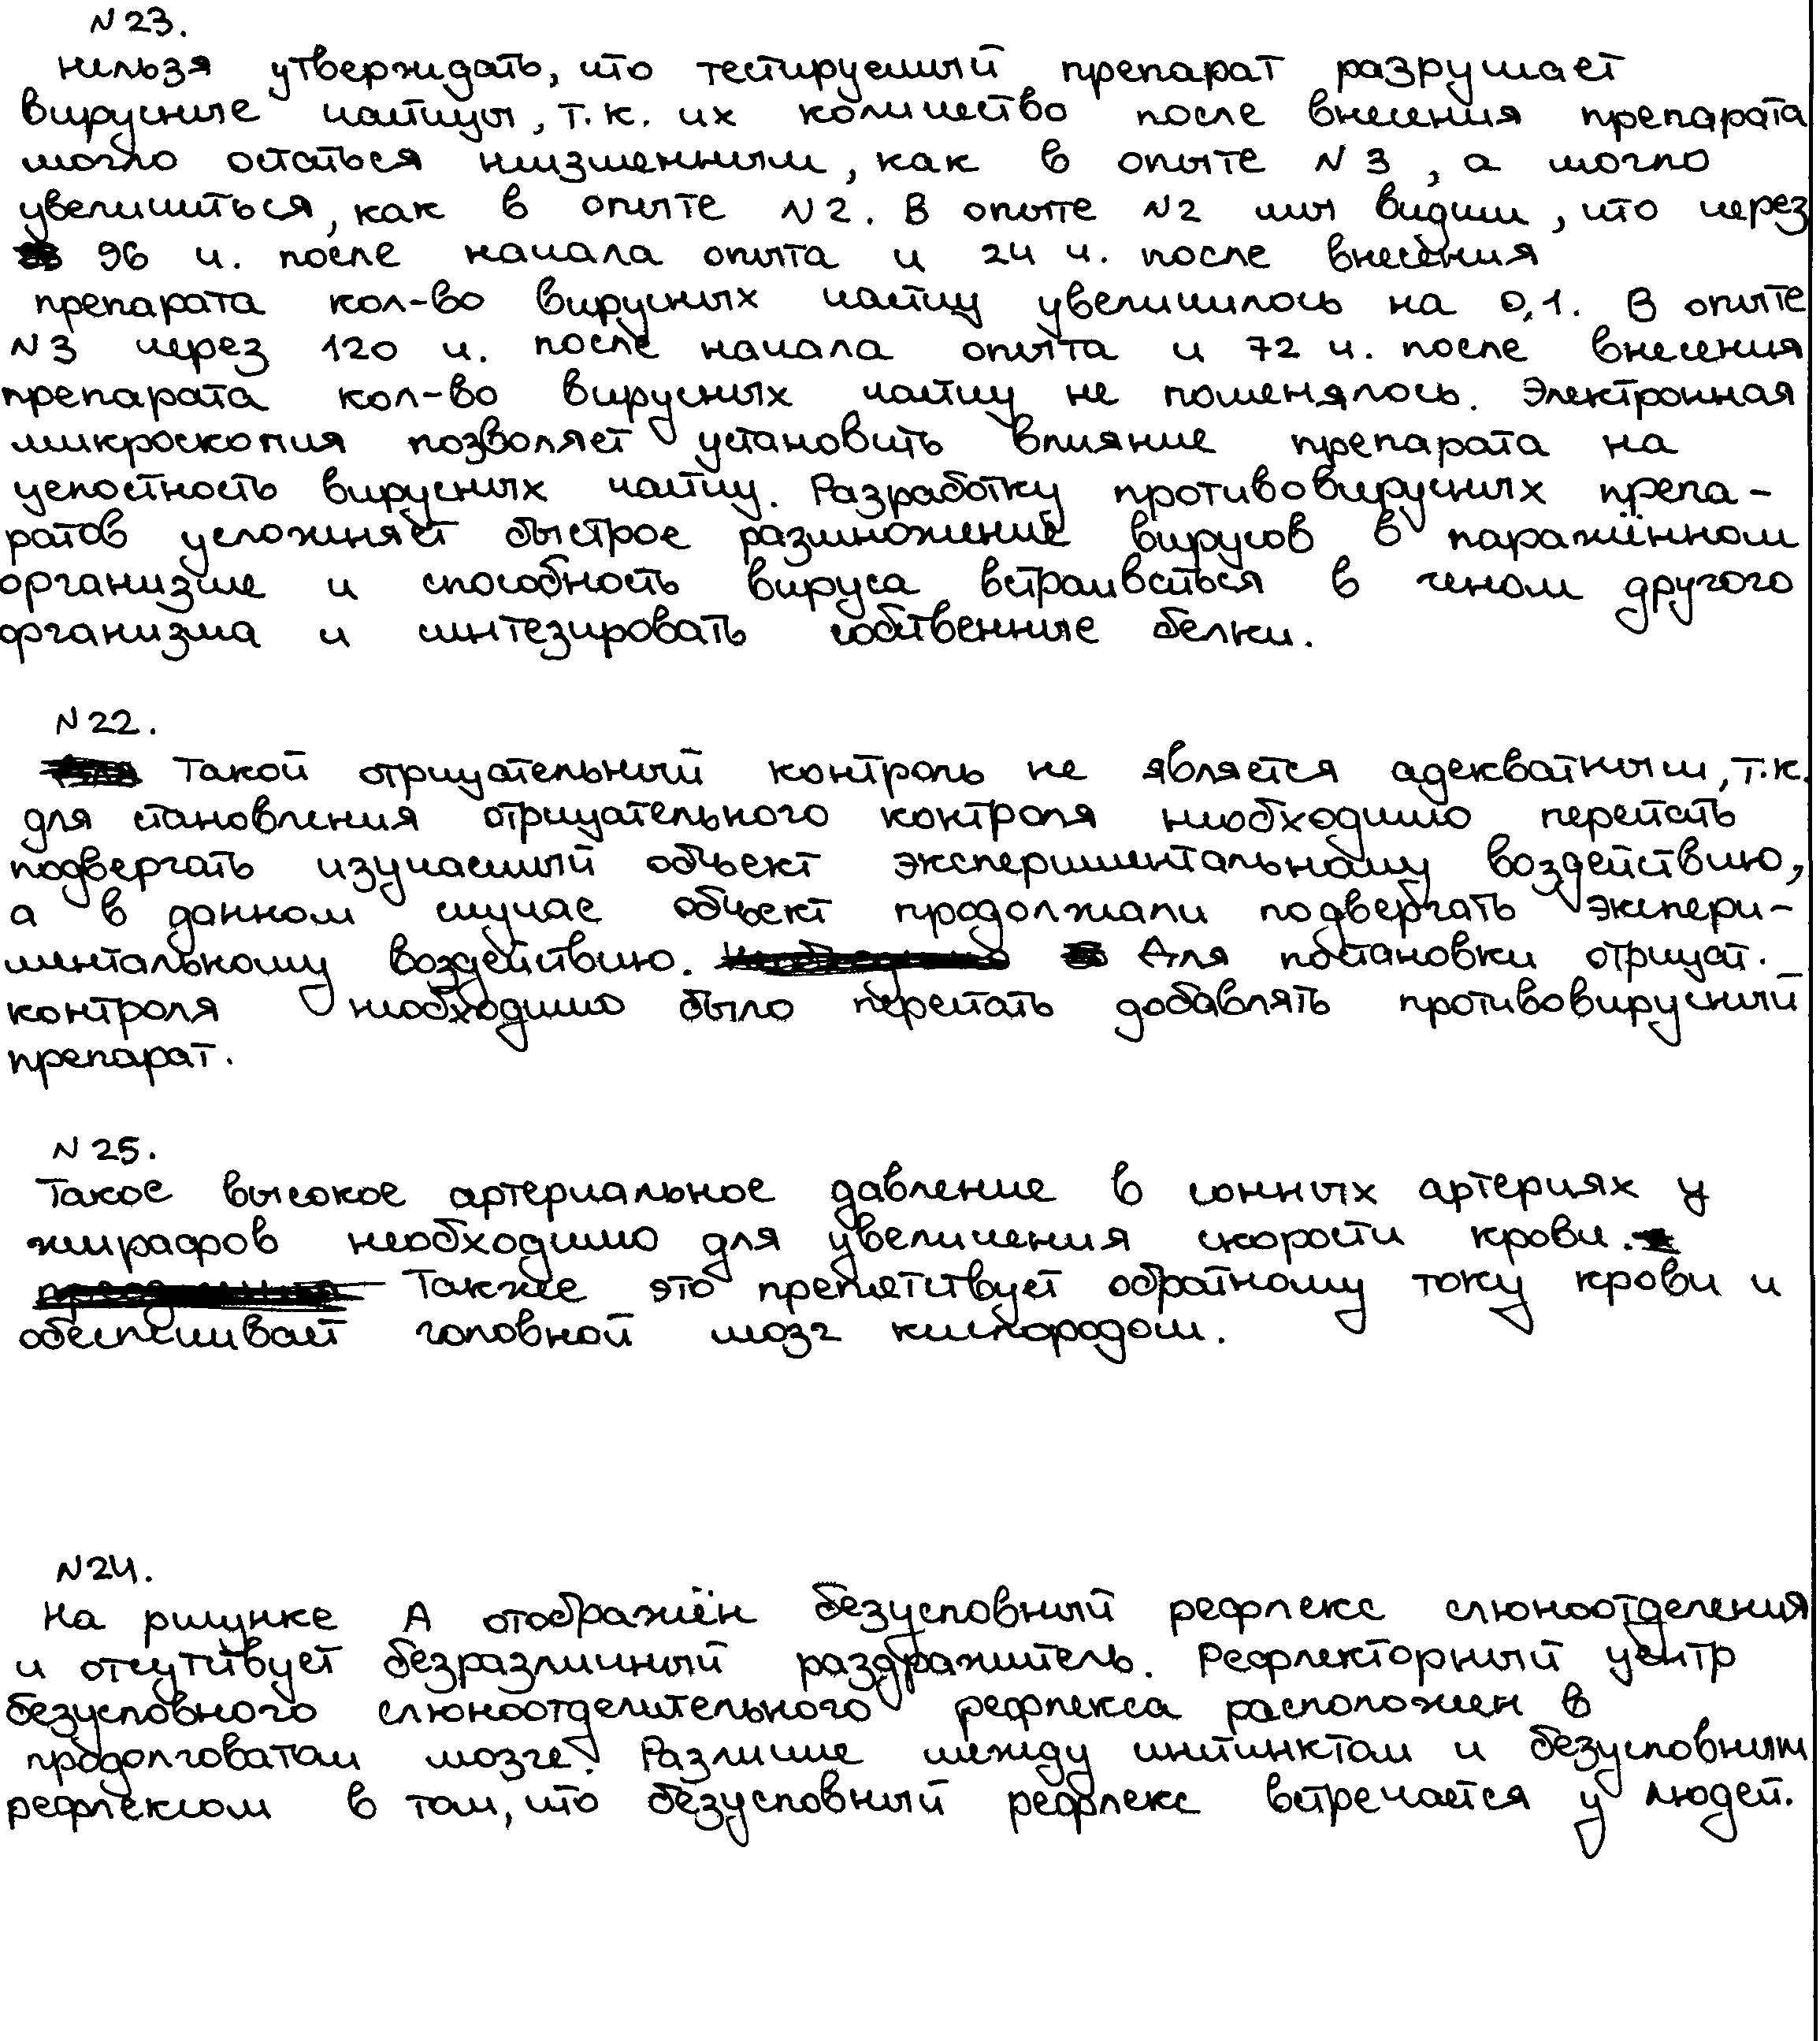 N 23.
нельзя утверждать, что тестируемый препарат разрушает
вирусные частицы, т.к. их количество после внесения препарата
могло остаться неизменным, как в опыте N 3, а могло
увеличиться, как в опыте N 2. В опыте N 2 мы видим, что через
96 ч. после начала опыта и 24 ч. после внесения
препарата кол-во вирусных частиц увеличилось на 0,1. В опыте
N 3 через 120 ч. после начала опыта и 72 ч. после внесения
препарата кол-во вирусных частиц не поменялось. Электронная
микроскопия позволяет установить влияние препарата на
целостность вирусных частиц. Разработку противовирусных препа-
ратов усложняет быстрое размножение вирусов в паражённом
организме и способность вируса встраиваться в геном другого
организма и синтезировать собственные белки.
N 22.
Такой отрицательный контроль не является адекватным, т.к.
для становления отрицательного контроля необходимо перестать
подвергать изучаемый объект экспериментальному воздействию,
а в данном случае объект продолжали подвергать экспери-
ментальному воздействию. Для постановки отрицат.
контроля необходимо было перестать добавлять противовирусный
препарат.
N 25.
Такое высокое артериальное давление в сонных артериях у
жирафов необходимо для увеличения скорости крови.
Также это препятствует обратному току крови и
обеспечивает головной мозг кислородом.
N 24.
На рисунке А отображён безусловный рефлекс слюноотделения
и отсутствует безразличный раздражитель. Рефлекторный центр
безусловного слюноотделительного рефлекса расположен в
продолговатом мозге. Различие между инстинктом и безусловным
рефлексом в том, что безусловный рефлекс встречается у людей.